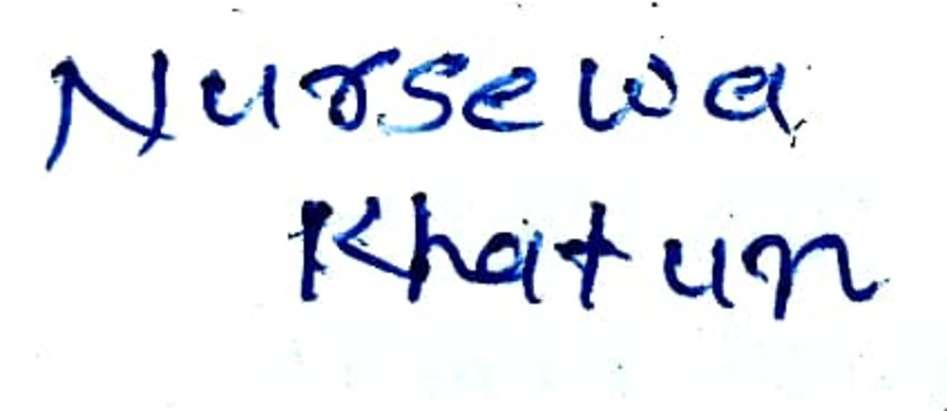 Nursewa
Khatun